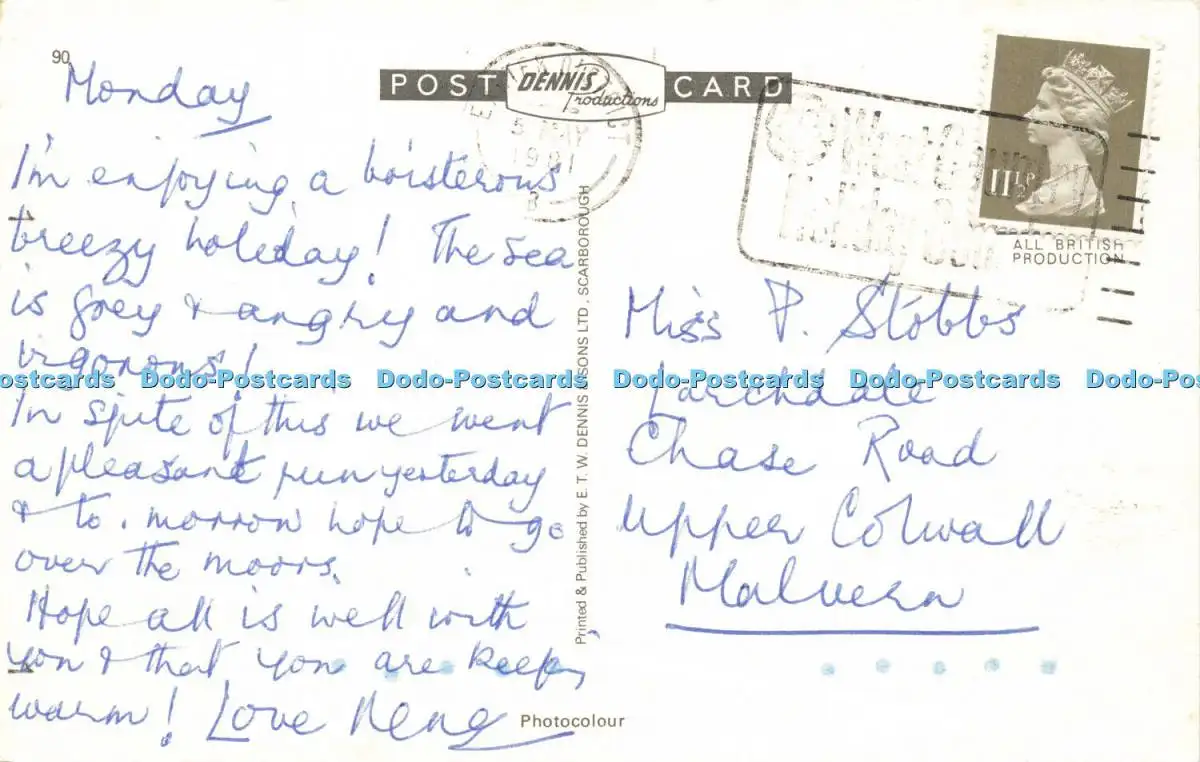 90
POST DENNIS Productions CARD
11½P
ALL BRITISH
PRODUCTION
Monday
I'm enjoying a boisterous
breezy holiday! The sea
is grey & angry and
vigorous!
In spite of this we went
a pleasant run yesterday
& to.morrow hope to go
over the moors.
Hope all is well with
you & that you are keeping
warm! Love
Printed & Published by E. T. W. DENNIS & SONS LTD., SCARBOROUGH
Photocolour
Miss P. Stobbs
Larchdale
Chase Road
Upper Colwall
Malvern
Dodo-Postcards Dodo-Postcards Dodo-Postcards Dodo-Postcards Dodo-Postcards